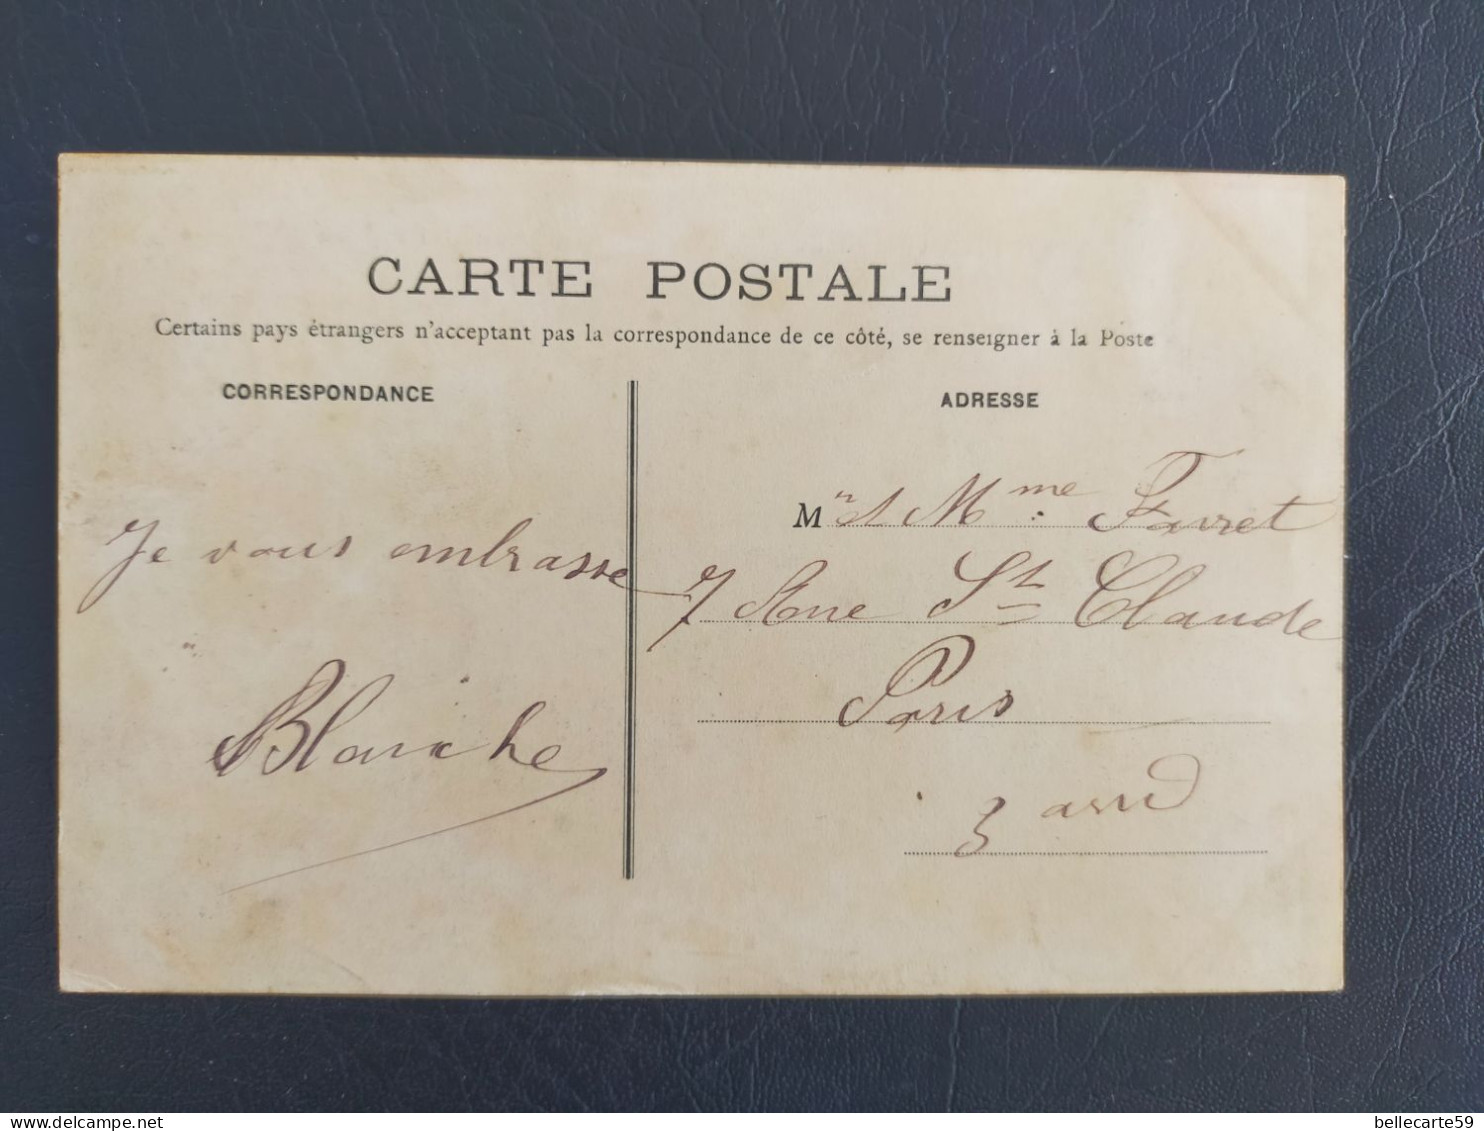 CARTE POSTALE
Certains pays étrangers n'acceptant pas la correspondance de ce côté, se renseigner à la Poste
CORRESPONDANCE
Je vous embrasse
Blanche
ADRESSE
Mr et Mme Favret
7 Rue St Claude
Paris
3 arrd
bellecarte59